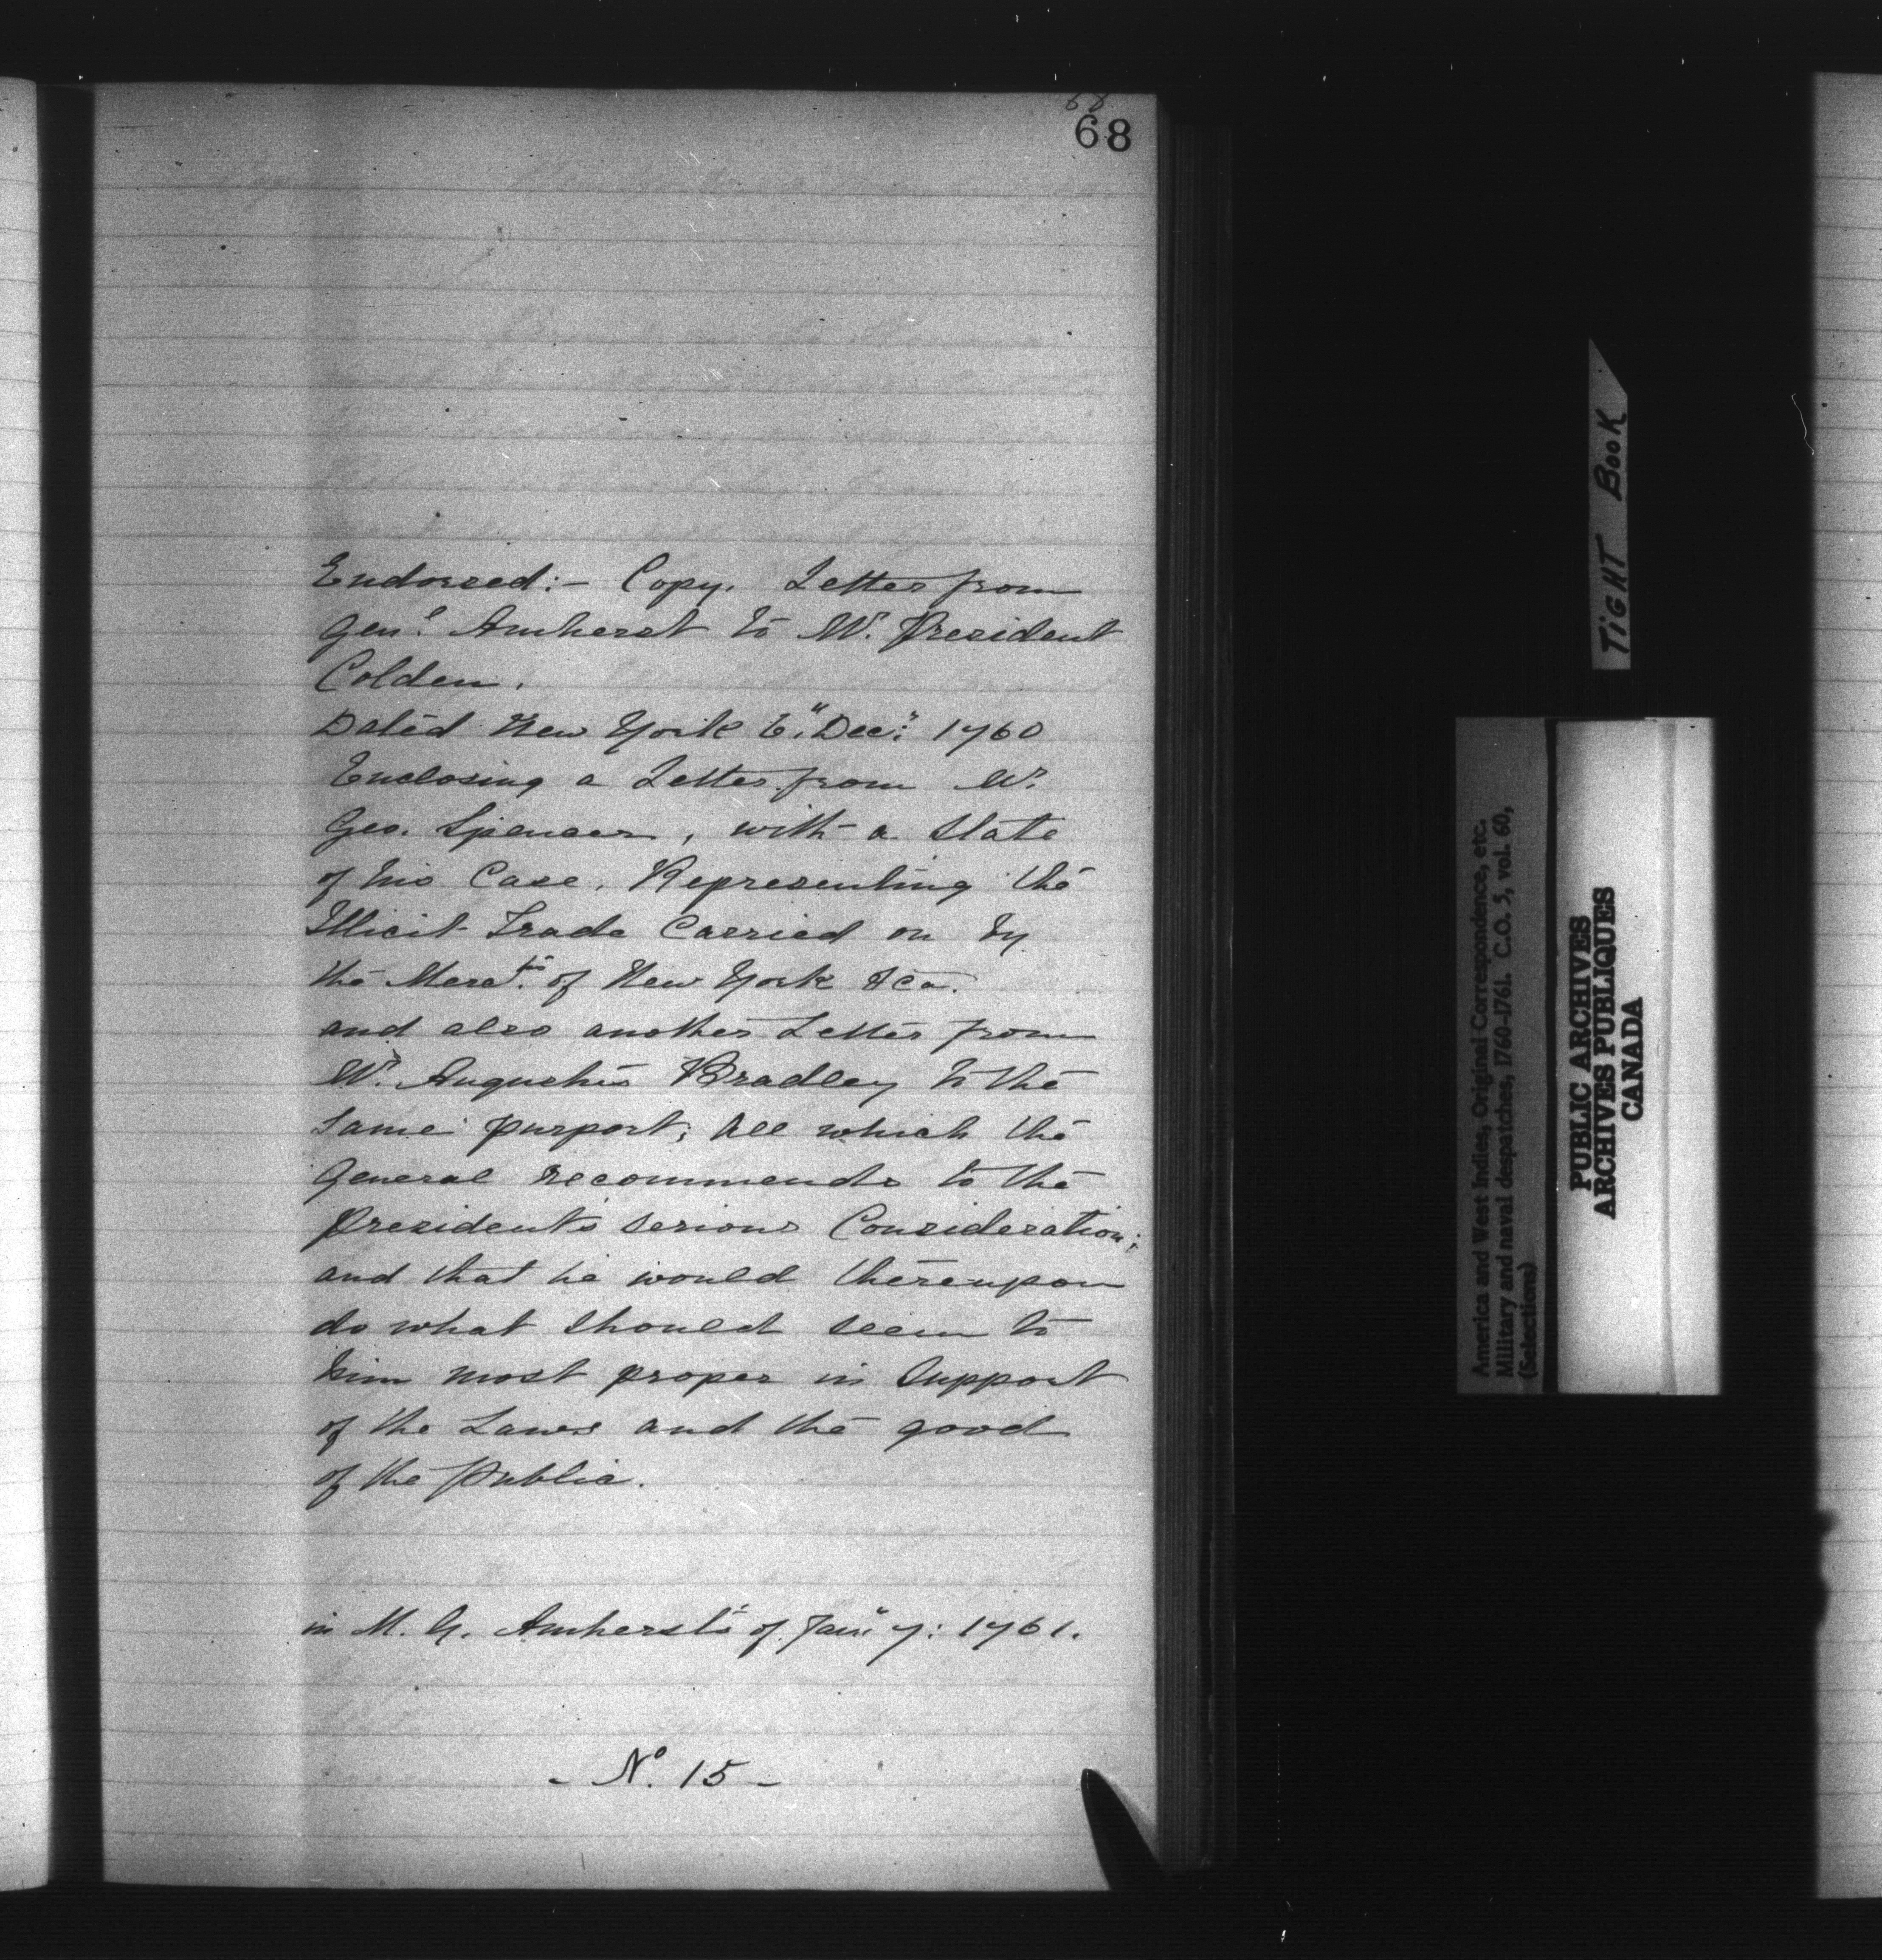 68
68
Endorsed:- Copy. Letter from
Gen.l Amherst to Mr. President
Colden.
Dated New York 6.th Dec.r 1760
Enclosing a Letter from Mr.
Geo. Spencer, with a State
of his Case, Representing the
Illicit Trade Carried on by
the Merc.ts of New York &ca.
and also another Letter from
Mr. Augustus Bradley to the
same purport; All which the
General recommends to the
Presidents serious Consideration;
and that he would thereupon
do what should seem to
him most proper in Support
of the Laws and the good
of the Public.
in M. G. Amherst's of Jan.y 7: 1761.
- No. 15 -
TIGHT BOOK
America and West Indies, Original Correspondence, etc.
Military and naval despatches, 1760-1761. C.O. 5, vol. 60,
(Selections)
PUBLIC ARCHIVES
ARCHIVES PUBLIQUES
CANADA